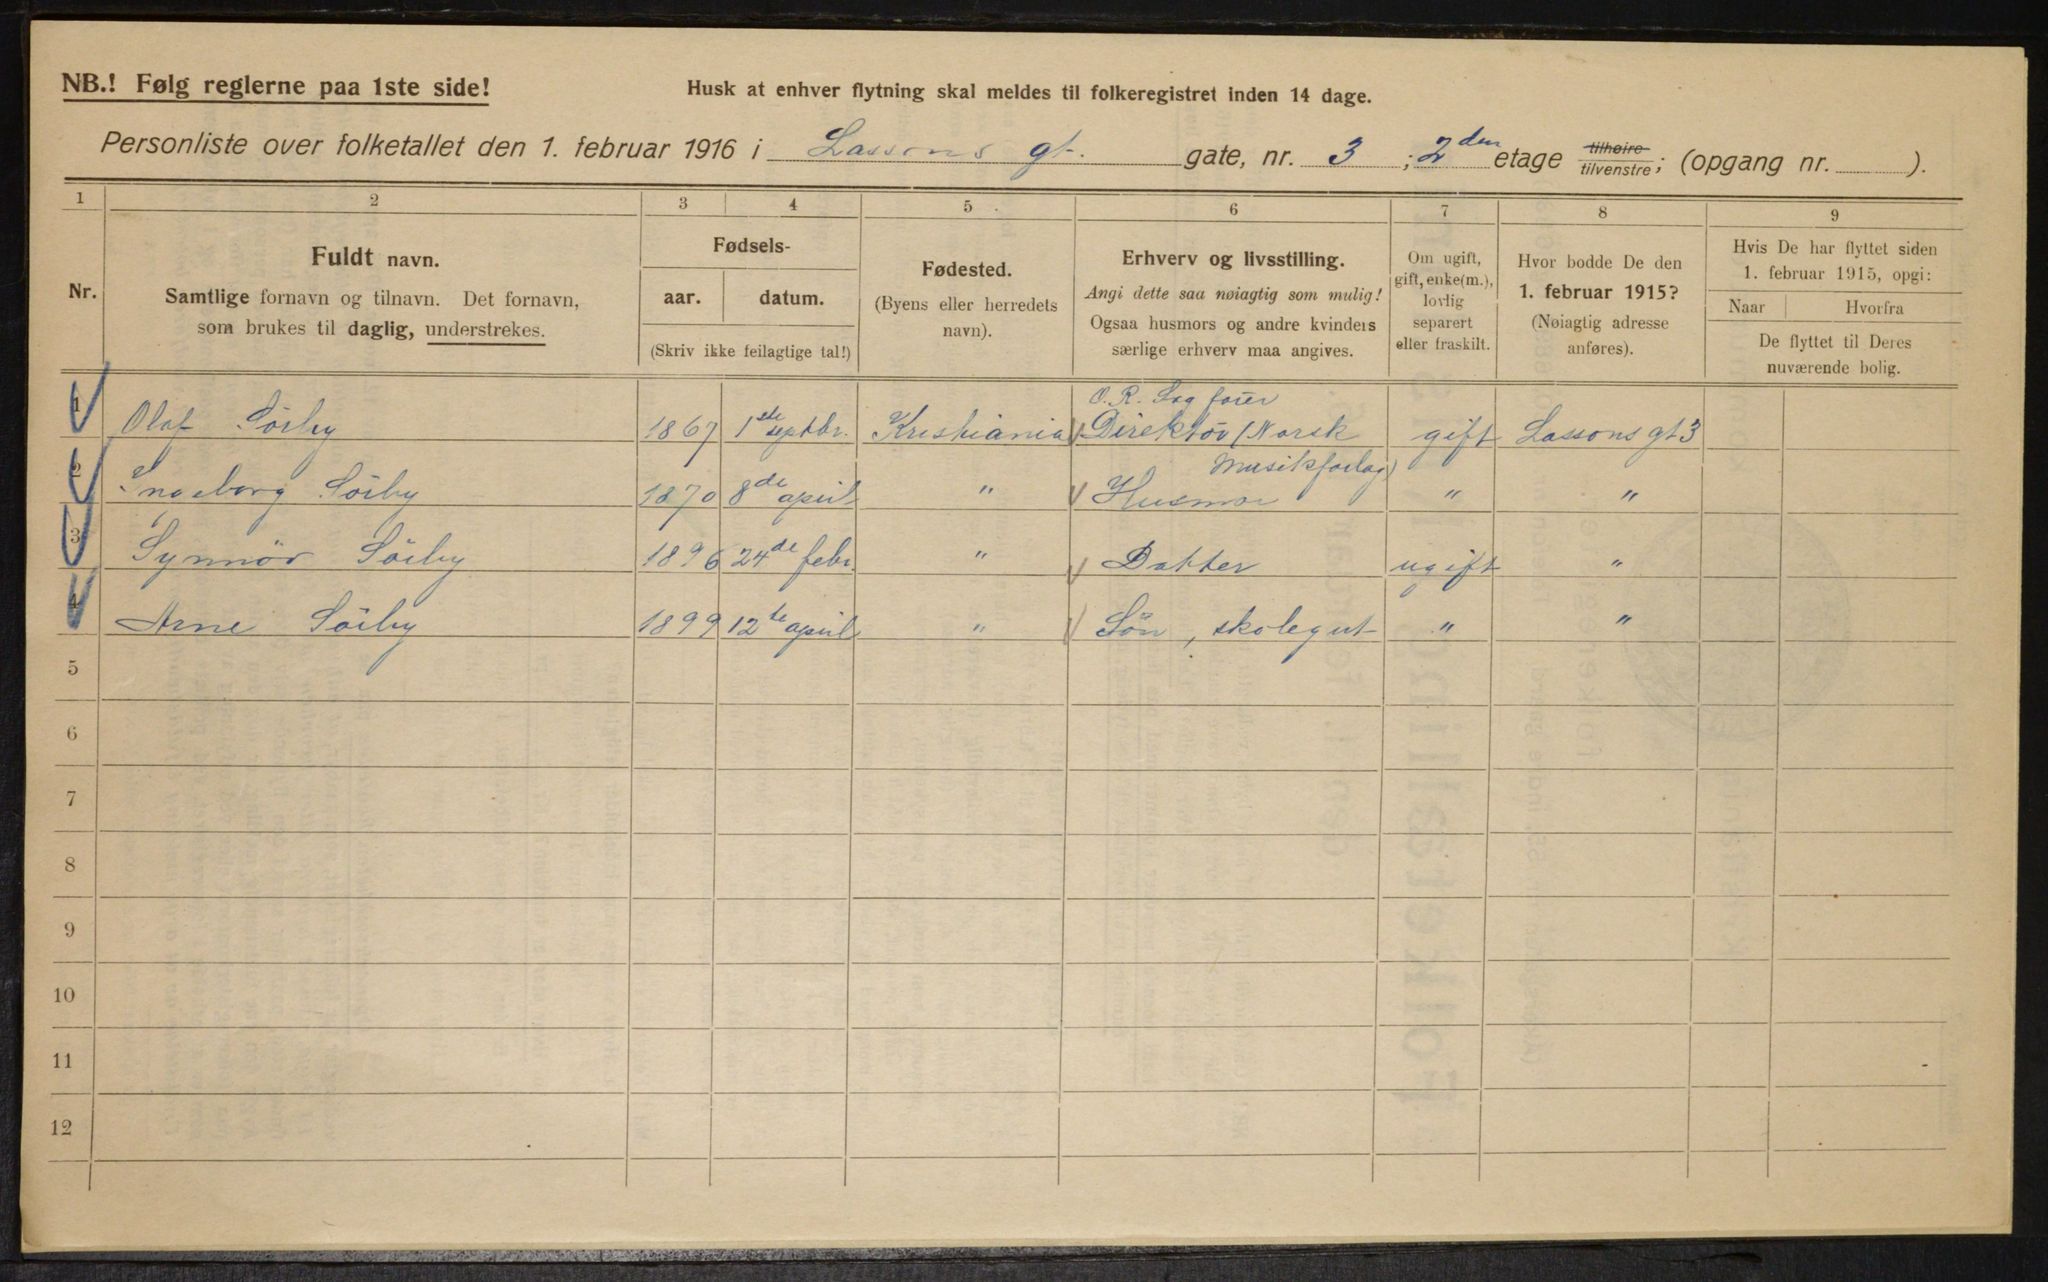 NB.! Følg reglerne paa 1ste side!
Husk at enhver flytning skal meldes til folkeregistret inden 14 dage.
Personliste over folketallet den 1. februar 1916 i Lassons gt. gate, nr. 3 ; 2den etage tilhøire tilvenstre; (opgang nr. ).
1 2 3 4 5 6 7 8 9
Nr.
Fuldt navn.
Samtlige fornavn og tilnavn. Det fornavn,
som brukes til daglig, understrekes.
Fødsels-
aar. datum.
(Skriv ikke feilagtige tal!)
Fødested.
(Byens eller herredets
navn).
Erhverv og livsstilling.
Angi dette saa nøiagtig som mulig!
Ogsaa husmors og andre kvinders
særlige erhverv maa angives.
Om ugift,
gift, enke(m.),
lovlig
separert
eller fraskilt.
Hvor bodde De den
1. februar 1915?
(Nøiagtig adresse
anføres).
Hvis De har flyttet siden
1. februar 1915, opgi:
Naar Hvorfra
De flyttet til Deres
nuværende bolig.
O. R. Sagförer
1 Olaf Sörby 1867 1ste septbr. Kristiania Direktör (Norsk gift Lassons gt 3
Musikforlag)
2 Ingeborg Sörby 1870 8de april " Husmor " "
3 Synnöv Sörby 1896 24de febr. " Datter ugift "
4 Arne Sörby 1899 12te april " Sön, skolegut " "
5
6
7
8
9
10
11
12